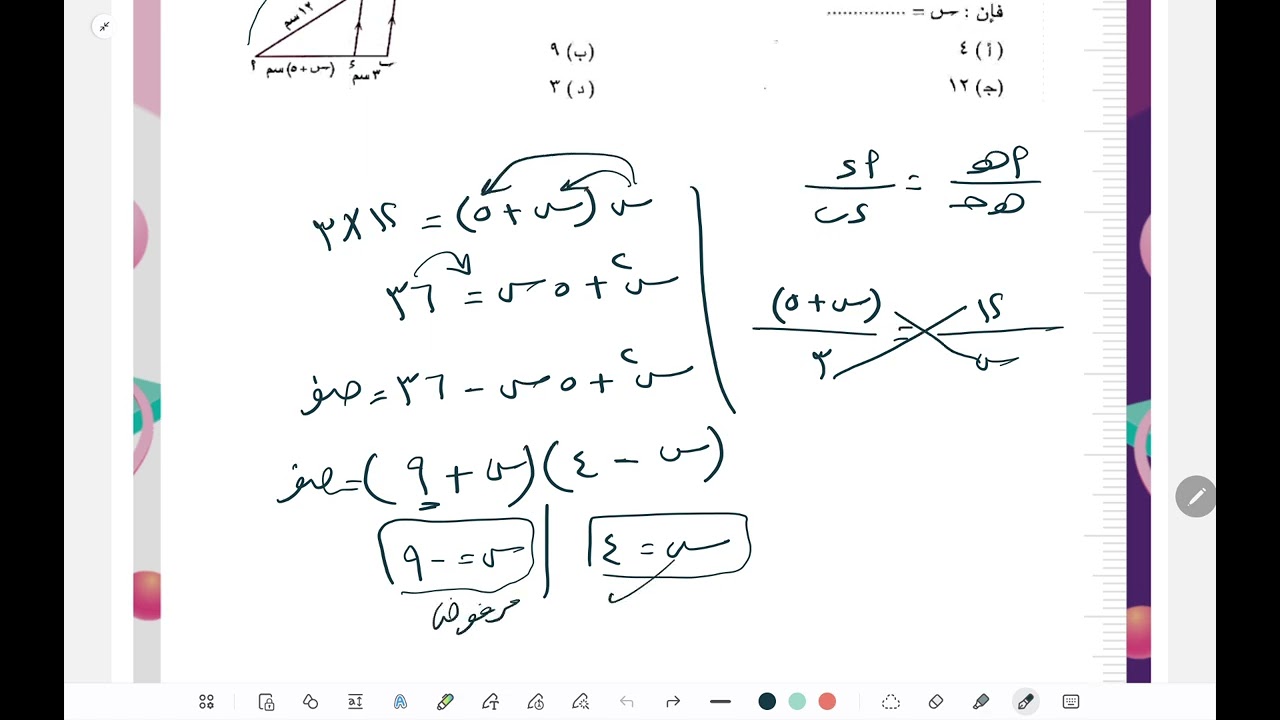 فإن : س = ..............
(أ) ٤ (ب) ٩
(ج) ١٢ (د) ٣
١٢ سم
(س + ٥) سم
٣ سم
أ ء ب
أهـ / هـ جـ = أ ء / ء ب
١٢ / س = (س + ٥) / ٣
س (س + ٥) = ١٢ × ٣
س٢ + ٥ س = ٣٦
س٢ + ٥ س - ٣٦ = صفر
(س - ٤) (س + ٩) = صفر
س = ٤ | س = -٩
مرفوض